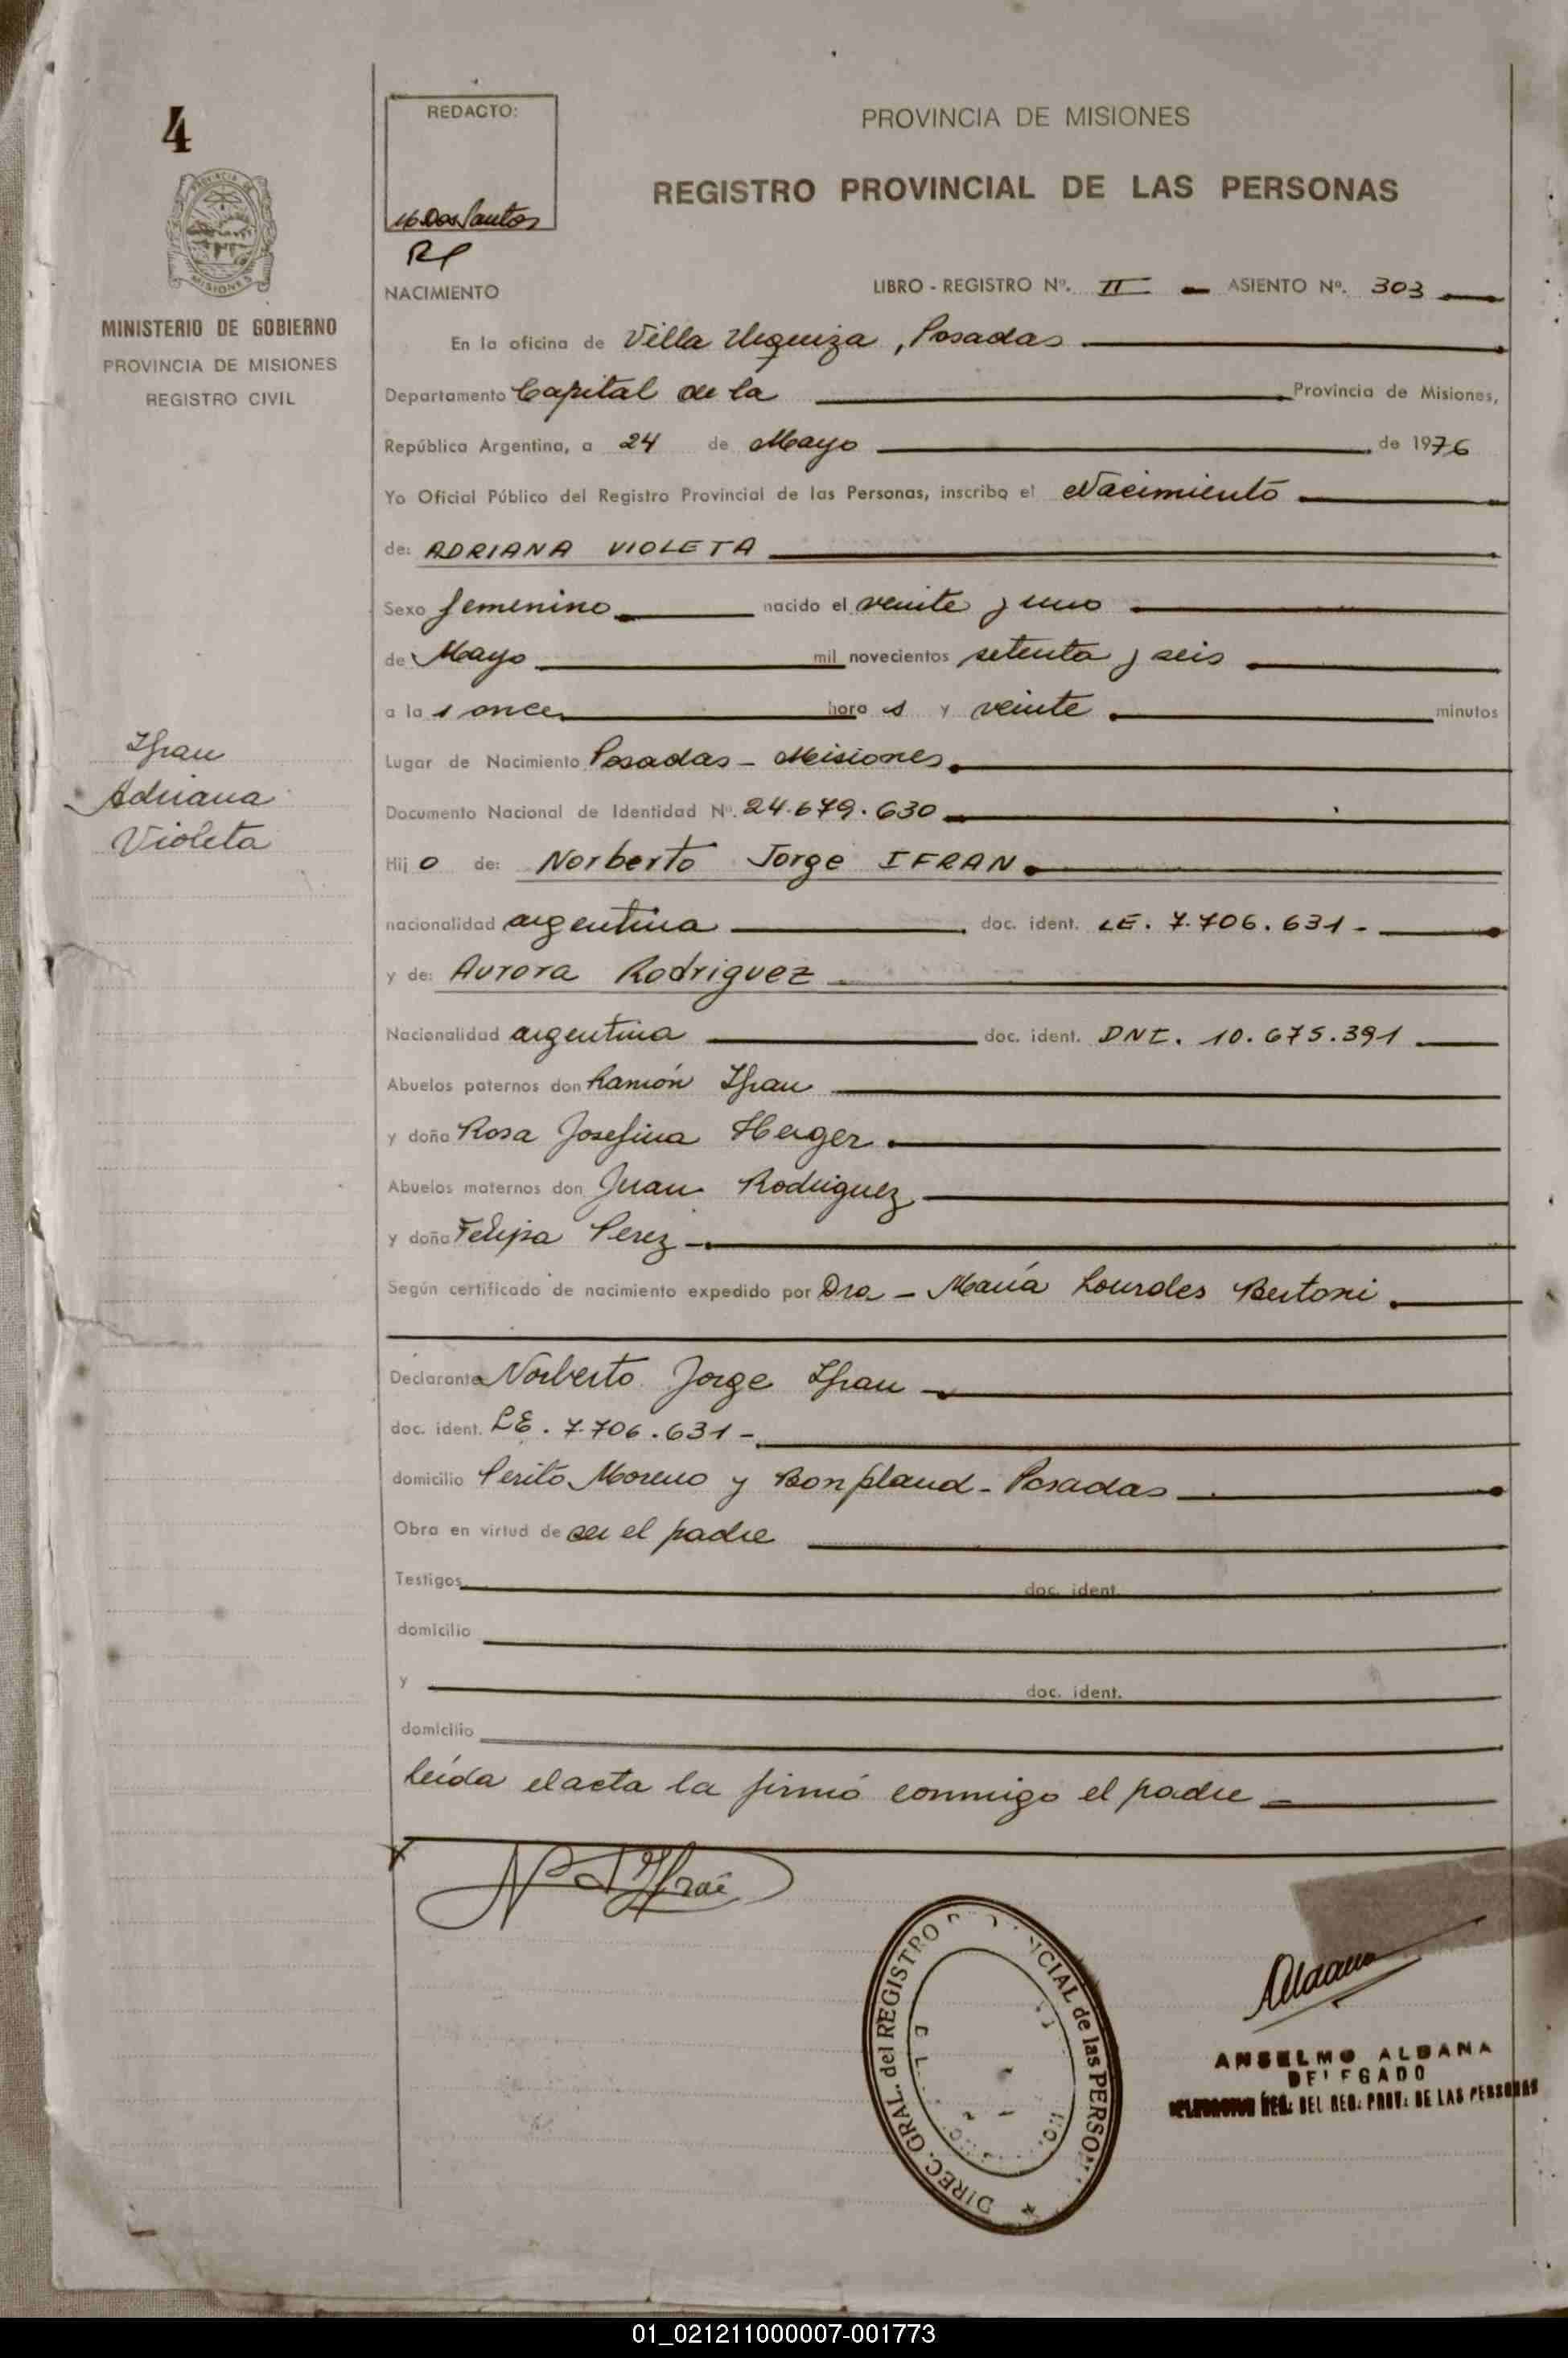 4
PROVINCIA DE
MISIONES
MINISTERIO DE GOBIERNO
PROVINCIA DE MISIONES
REGISTRO CIVIL
Ifran
Adriana
Violeta
REDACTO:
Dos Santos
PROVINCIA DE MISIONES
REGISTRO PROVINCIAL DE LAS PERSONAS
NACIMIENTO
LIBRO - REGISTRO Nº. II - ASIENTO Nº. 303
En la oficina de Villa Urquiza, Posadas
Departamento Capital de la Provincia de Misiones,
República Argentina, a 24 de Mayo de 1976
Yo Oficial Público del Registro Provincial de las Personas, inscribo el Nacimiento
de: ADRIANA VIOLETA
Sexo femenino nacido el veinte y uno
de Mayo mil novecientos setenta y seis
a la s once hora s y veinte minutos
Lugar de Nacimiento Posadas - Misiones
Documento Nacional de Identidad Nº. 24.679.630
Hij o de: Norberto Jorge IFRAN
nacionalidad argentina doc. ident. LE. 7.706.631-
y de: Aurora Rodriguez
Nacionalidad argentina doc. ident. DNI. 10.675.391
Abuelos paternos don Ramón Ifran
y doña Rosa Josefina Herger
Abuelos maternos don Juan Rodriguez
y doña Felipa Perez
Según certificado de nacimiento expedido por Dra - María Lourdes Bertoni
Declarante Norberto Jorge Ifran
doc. ident. LE. 7.706.631-
domicilio Perito Moreno y Bonpland - Posadas
Obra en virtud de ser el padre
Testigos doc. ident.
domicilio
y doc. ident.
domicilio
leída el acta la firmó conmigo el padre
DIREC. GRAL. del REGISTRO
de las
ANSELMO ALDANA
DELEGADO
REG. DEL REG. PROV. DE LAS PERSONAS
01_021211000007-001773